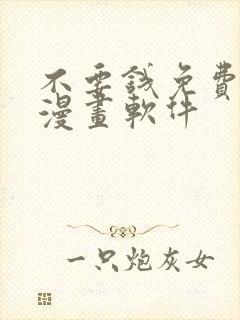 不要錢免費
漫畫軟件
一只炮灰女